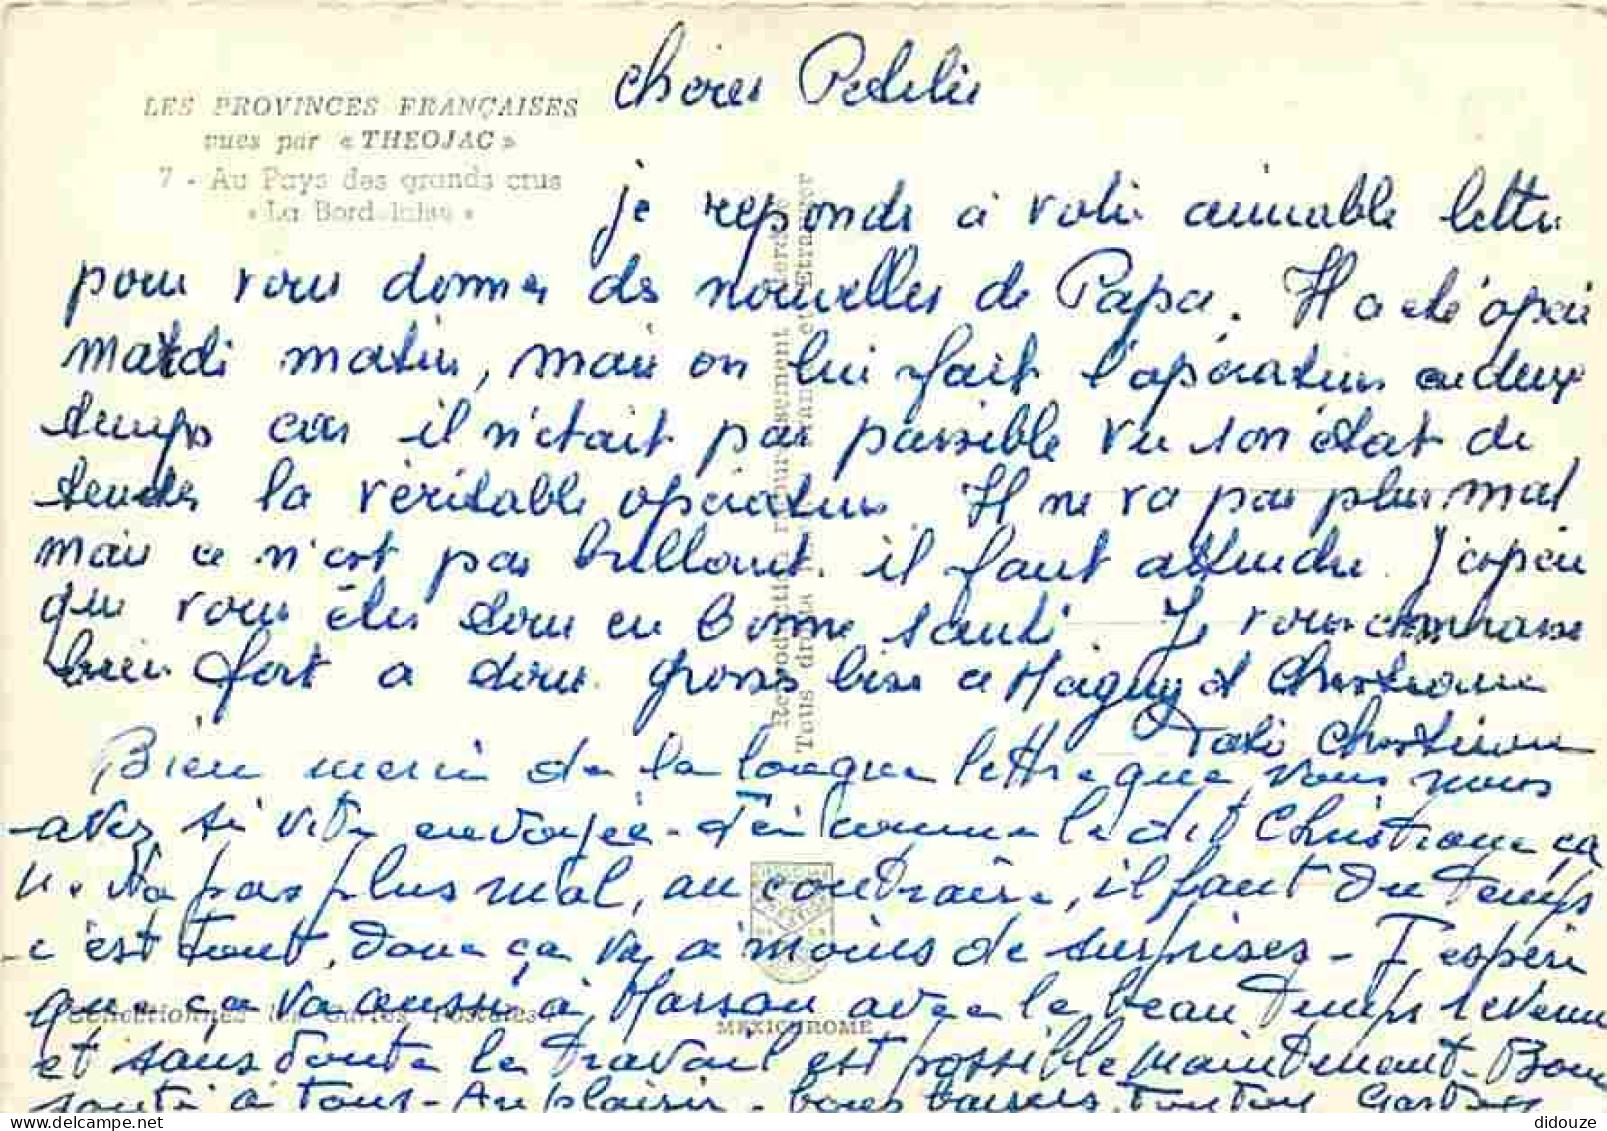 LES PROVINCES FRANÇAISES
vues par « THEOJAC »
7 - Au Pays des grands crus
« La Bordelaise »
Reproduction rigoureusement interdite
Tous droits réservés France et Etranger
Collectionnez les Cartes Postales
MEXICHROME
Cheres
je reponds à votre aimable lettre
pour vous donner des nouvelles de Papa. Il a été opéré
mardi matin, mais on lui fait l'opération en deux
temps car il n'était pas possible vu son état de
tenter la véritable opération Il ne va pas plus mal
mais ce n'est pas brillant. il faut attendre. J'espère
que vous êtes tous en bonne santé. Je vous embrasse
bien fort a tous. grosses bises a Maguy et Christiane
Christiane
Bien merci de la longue lettre que vous nous
avez si vite envoyée - comme le dit Christiane ça
n. Va pas plus mal, au contraire, il faut du temps
c'est tout, donc ça va a moins de surprises - J'espère
que ça va aussi à Marsan avec le beau temps revenu
et sans doute le travail est possible maintenant - Bonne
santé à tous - Au plaisir - bons baisers, Tonton Gaston
didouze